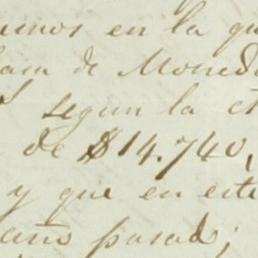 en la qu
de Moneda
segun la
de $14.740,
y que en este
año pasado;